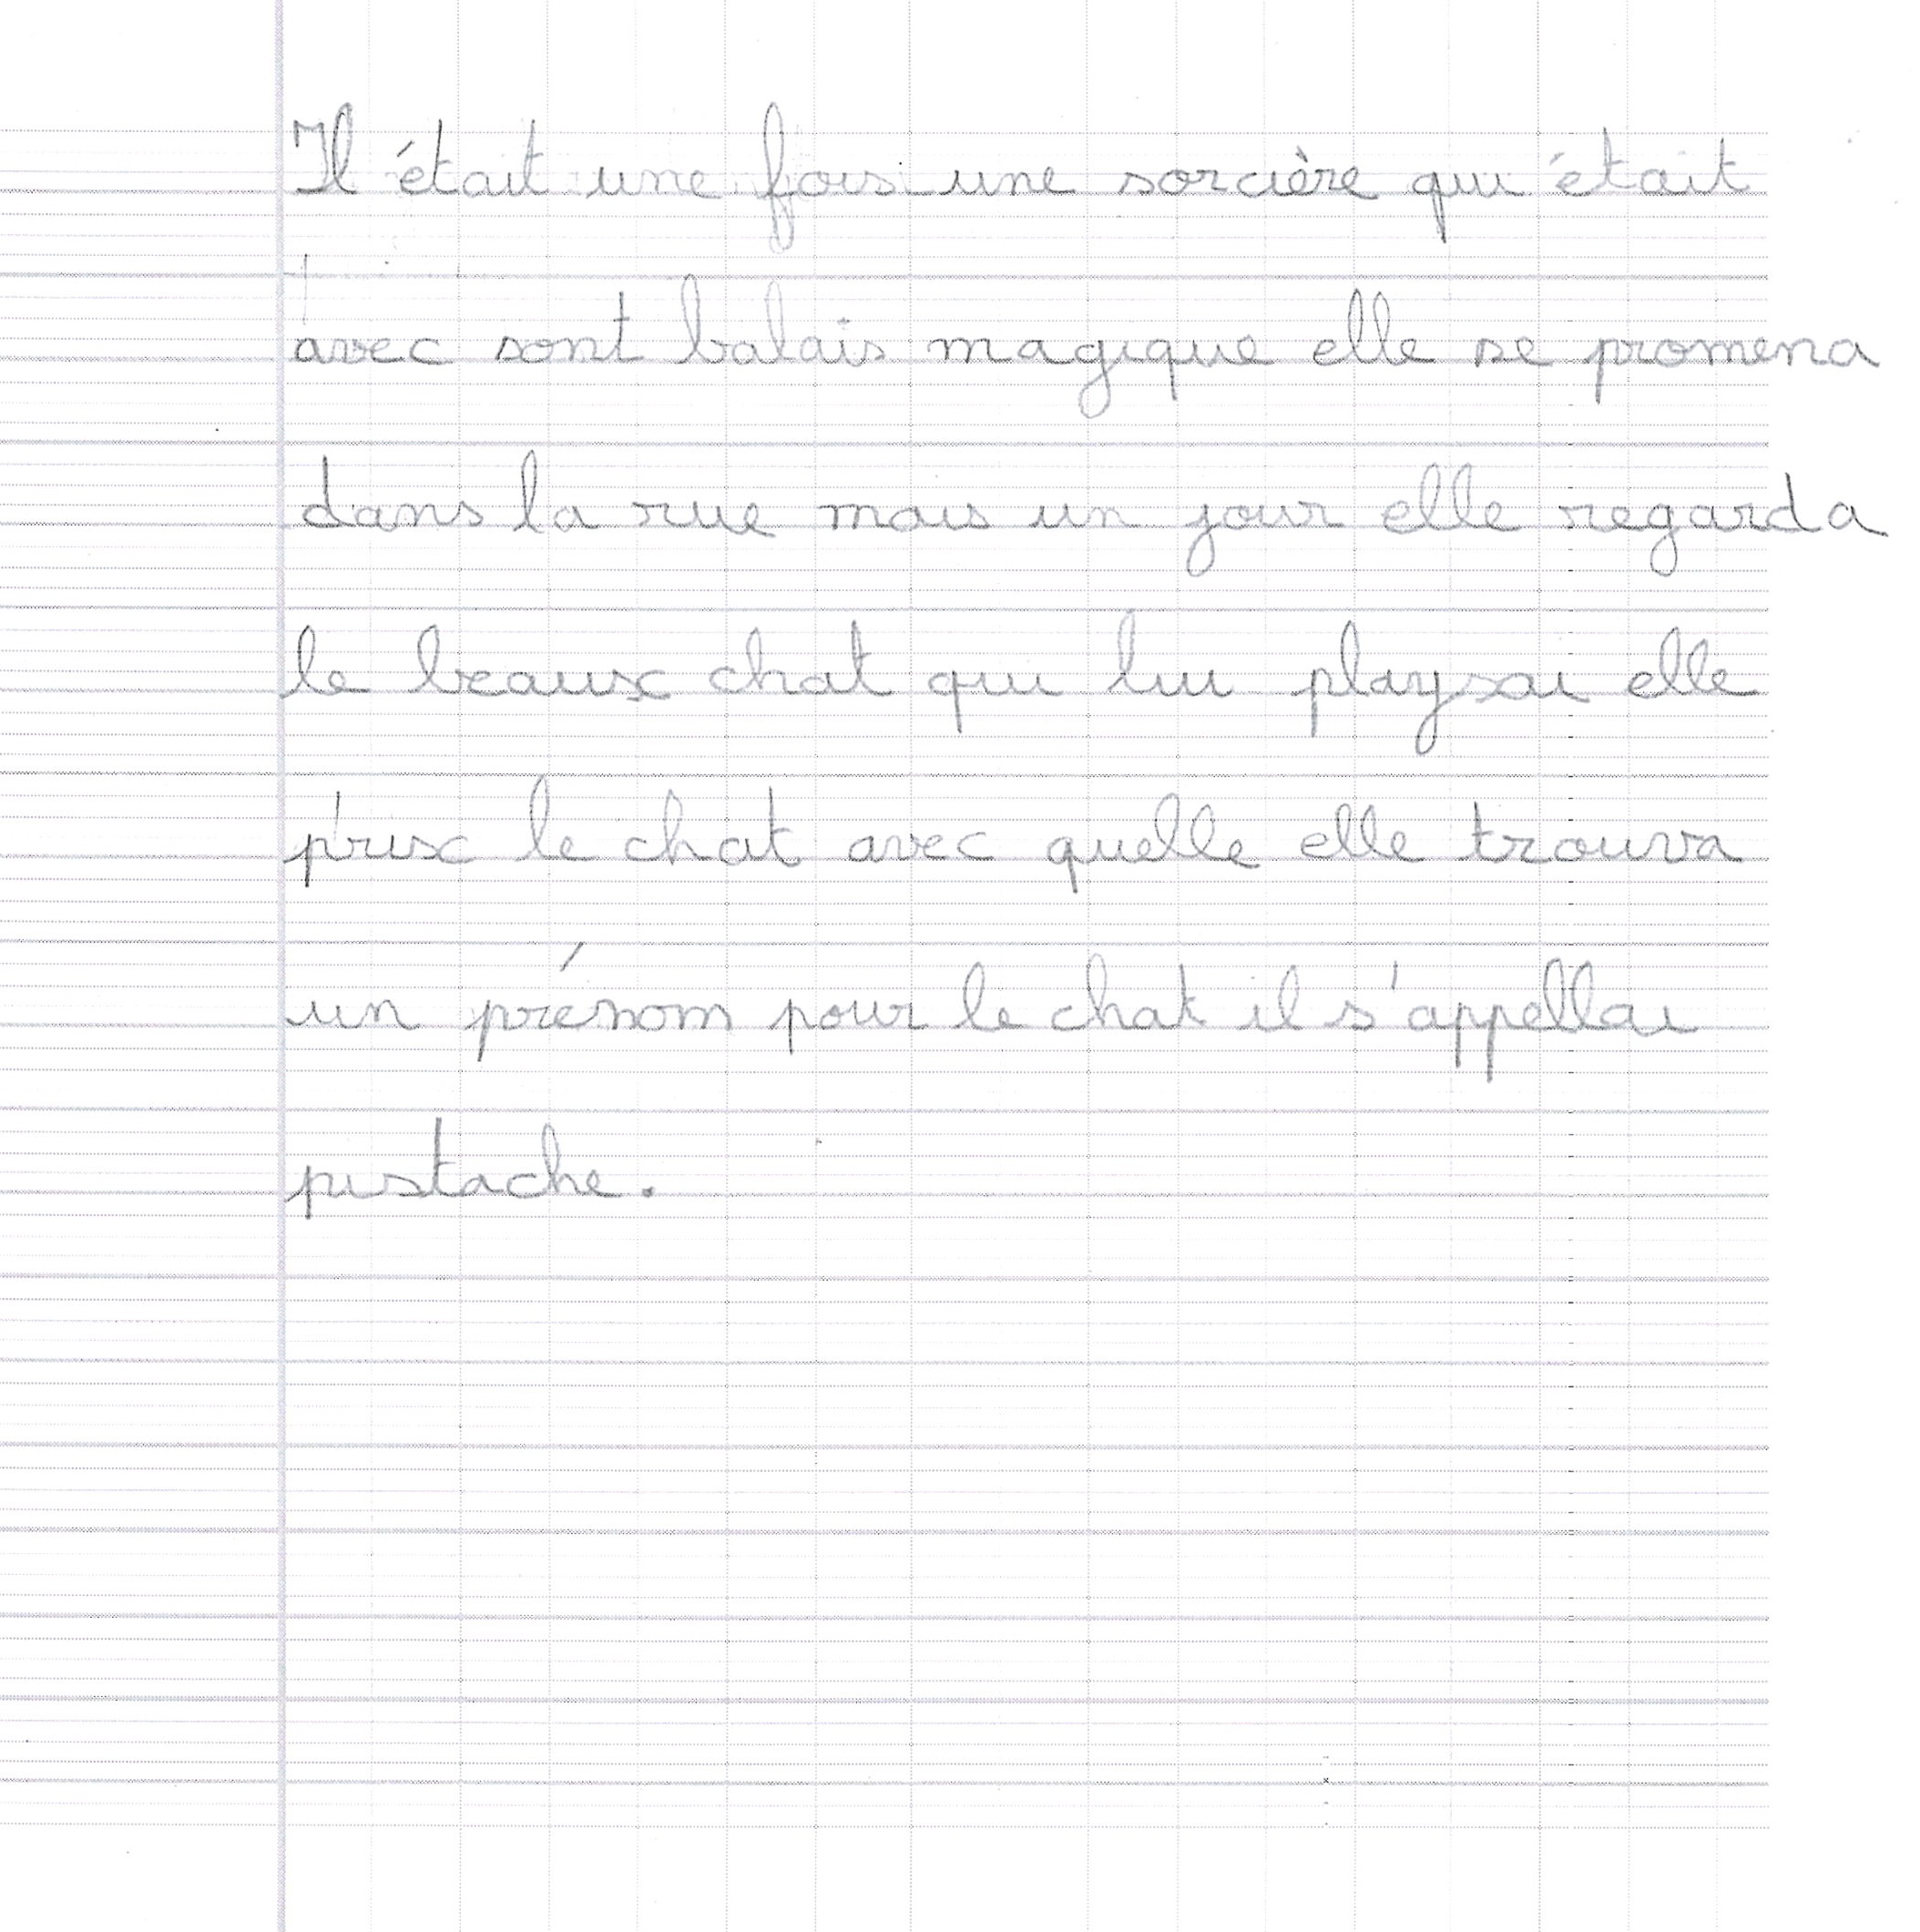 Il était une fois une sorcière qui était
avec sont balais magique elle se promena
dans la rue mais un jour elle regarda
le beaux chat qui lui playsai elle
prix le chat avec quelle elle trouva
un prénom pour le chat il s'appellai
pistache.